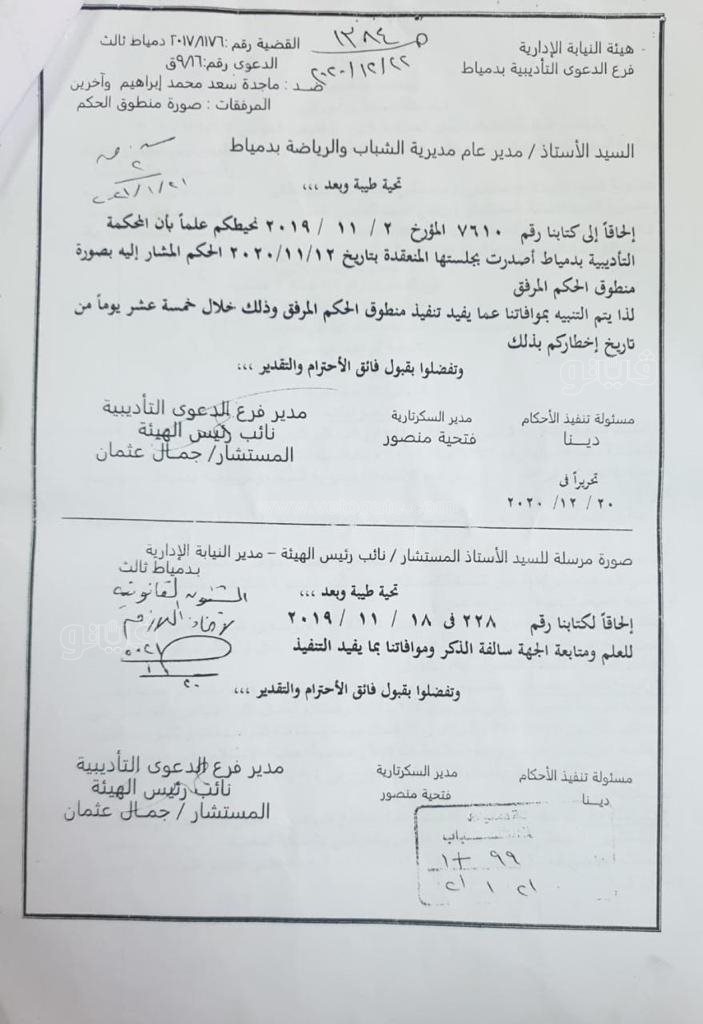 هيئة النيابة الإدارية
فرع الدعوى التأديبية بدمياط
١٣٨٤
٢٠٢٠/١٢/٢٢
القضية رقم :٢٠١٧/١١٧٦ دمياط ثالث
الدعوى رقم:٩/١٦ق
ضد : ماجدة سعد محمد إبراهيم وآخرين
المرفقات : صورة منطوق الحكم
السيد الأستاذ / مدير عام مديرية الشباب والرياضة بدمياط
تحية طيبة وبعد ،،،
٢٠٢١/١/٢١
إلحاقاً إلى كتابنا رقم ٧٦١٠ المؤرخ ٢ / ١١ / ٢٠١٩ نحيطكم علماً بأن المحكمة
التأديبية بدمياط أصدرت بجلستها المنعقدة بتاريخ ٢٠٢٠/١١/١٢ الحكم المشار إليه بصورة
منطوق الحكم المرفق
لذا يتم التنبيه بموافاتنا عما يفيد تنفيذ منطوق الحكم المرفق وذلك خلال خمسة عشر يوماً من
تاريخ إخطاركم بذلك
وتفضلوا بقبول فائق الأحترام والتقدير ،،،
مسئولة تنفيذ الأحكام
دينــا
مدير السكرتارية
فتحية منصور
مدير فرع الدعوى التأديبية
نائب رئيس الهيئة
المستشار/ جمـال عثمان
تحريراً فى
٢٠ /١٢ /٢٠٢٠
فيتو
www.vetogate.com
صورة مرسلة للسيد الأستاذ المستشار / نائب رئيس الهيئة – مدير النيابة الإدارية
بدمياط ثالث
تحية طيبة وبعد ،،،
الشئون القانونية
لاتخاذ اللازم
إلحاقاً لكتابنا رقم ٢٢٨ فى ١٨ / ١١ / ٢٠١٩
للعلم ومتابعة الجهة سالفة الذكر وموافاتنا بما يفيد التنفيذ
فيتو
وتفضلوا بقبول فائق الأحترام والتقدير ،،،
مسئولة تنفيذ الأحكام
دينـا
مدير السكرتارية
فتحية منصور
مدير فرع الدعوى التأديبية
نائب رئيس الهيئة
المستشار / جمـال عثمان
٩٩
٢١ ١ ٢١